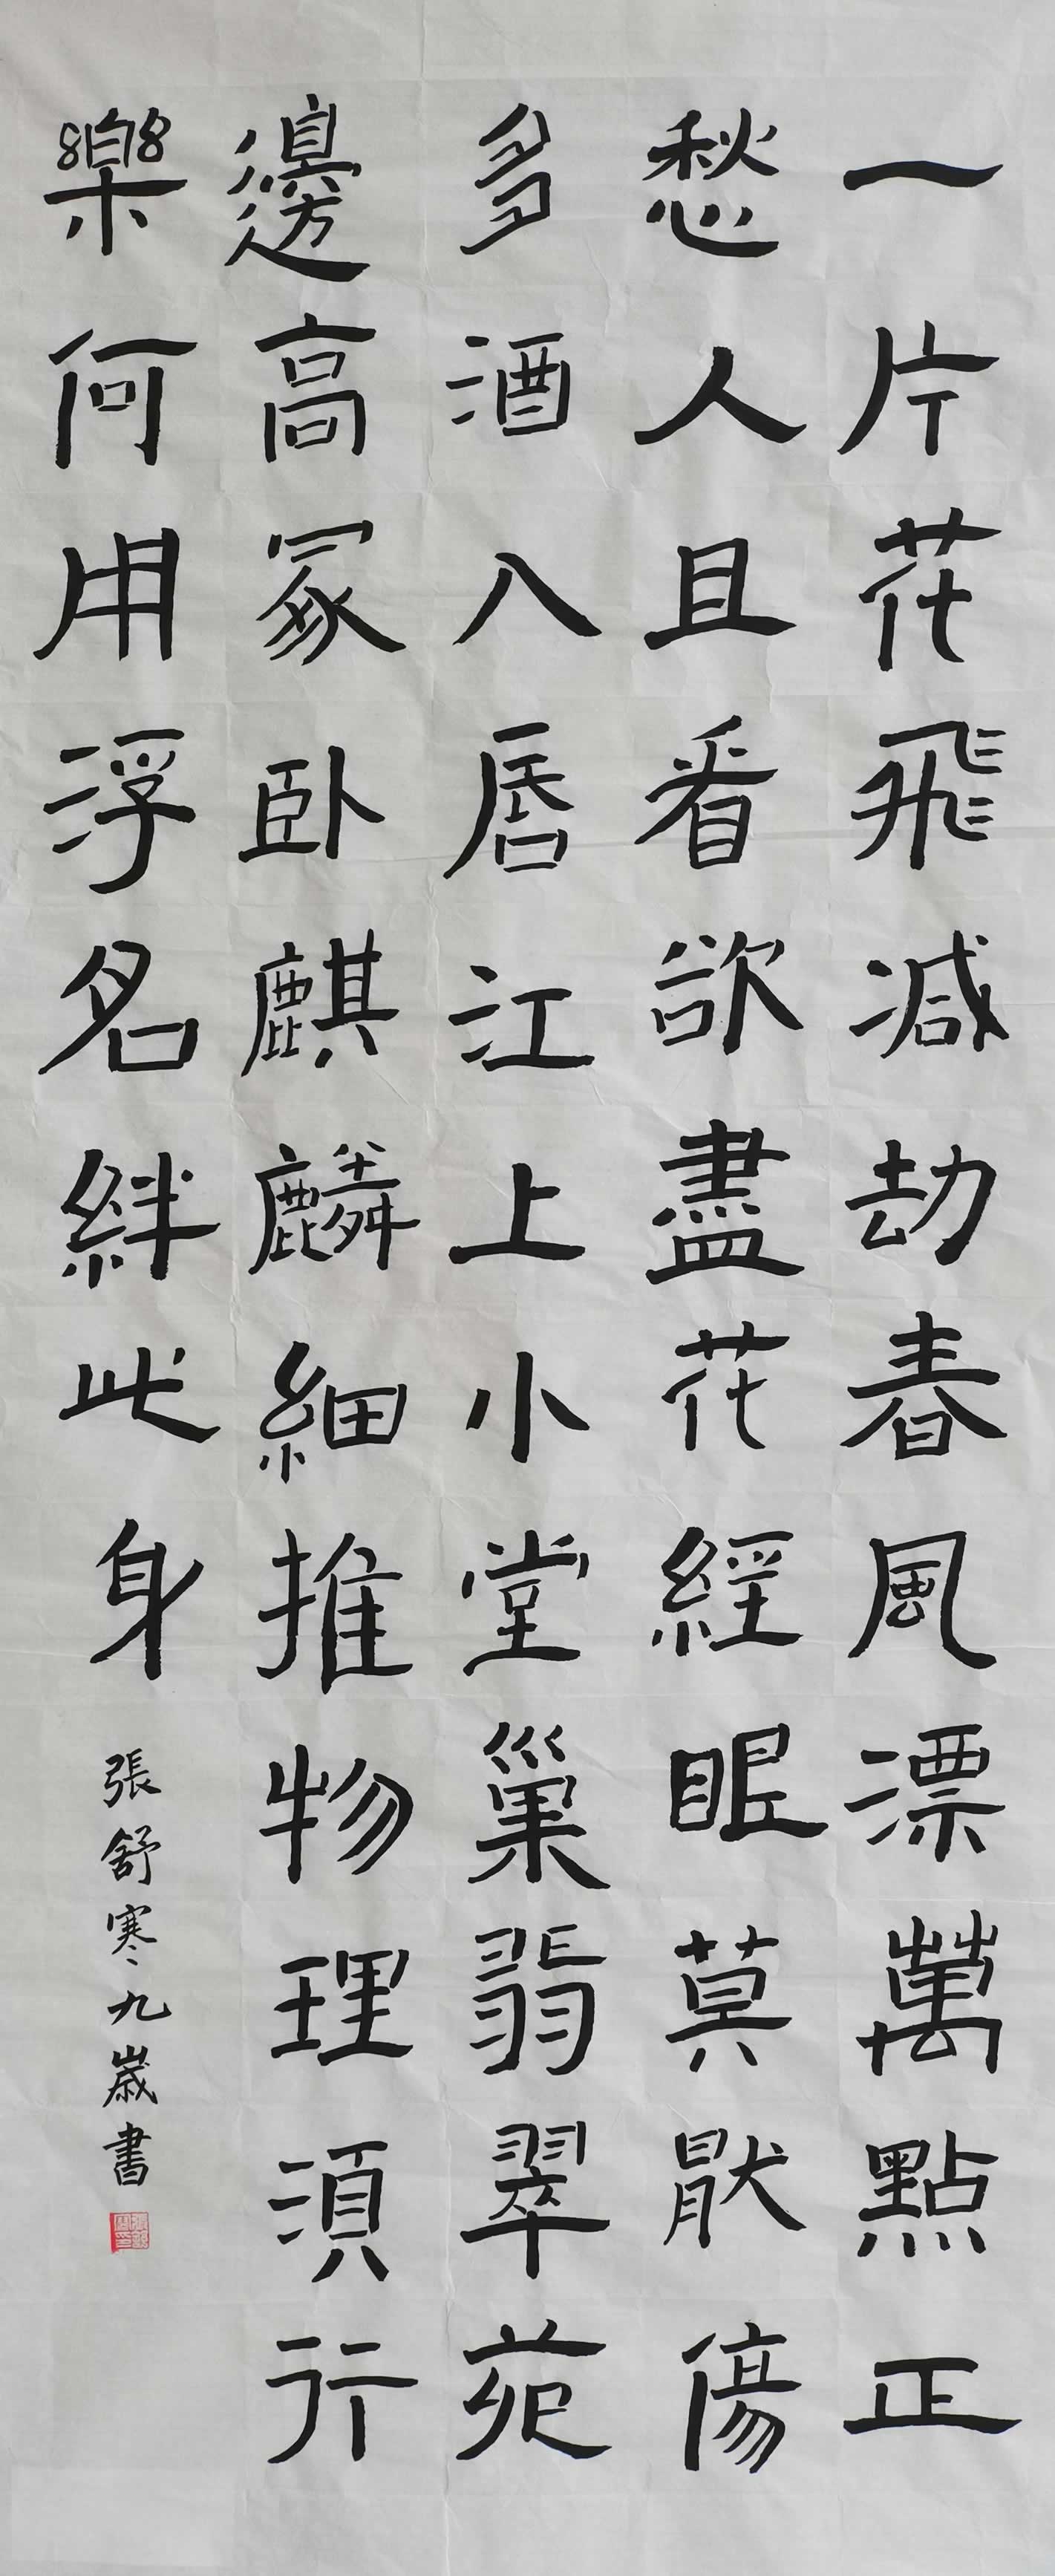 一片花飛減劫春風漂萬點正
愁人且看欲盡花經眼莫厭傷
多酒入唇江上小堂巢翡翠苑
邊高冢卧麒麟細推物理須行
樂何用浮名絆此身
張舒寒九歲書